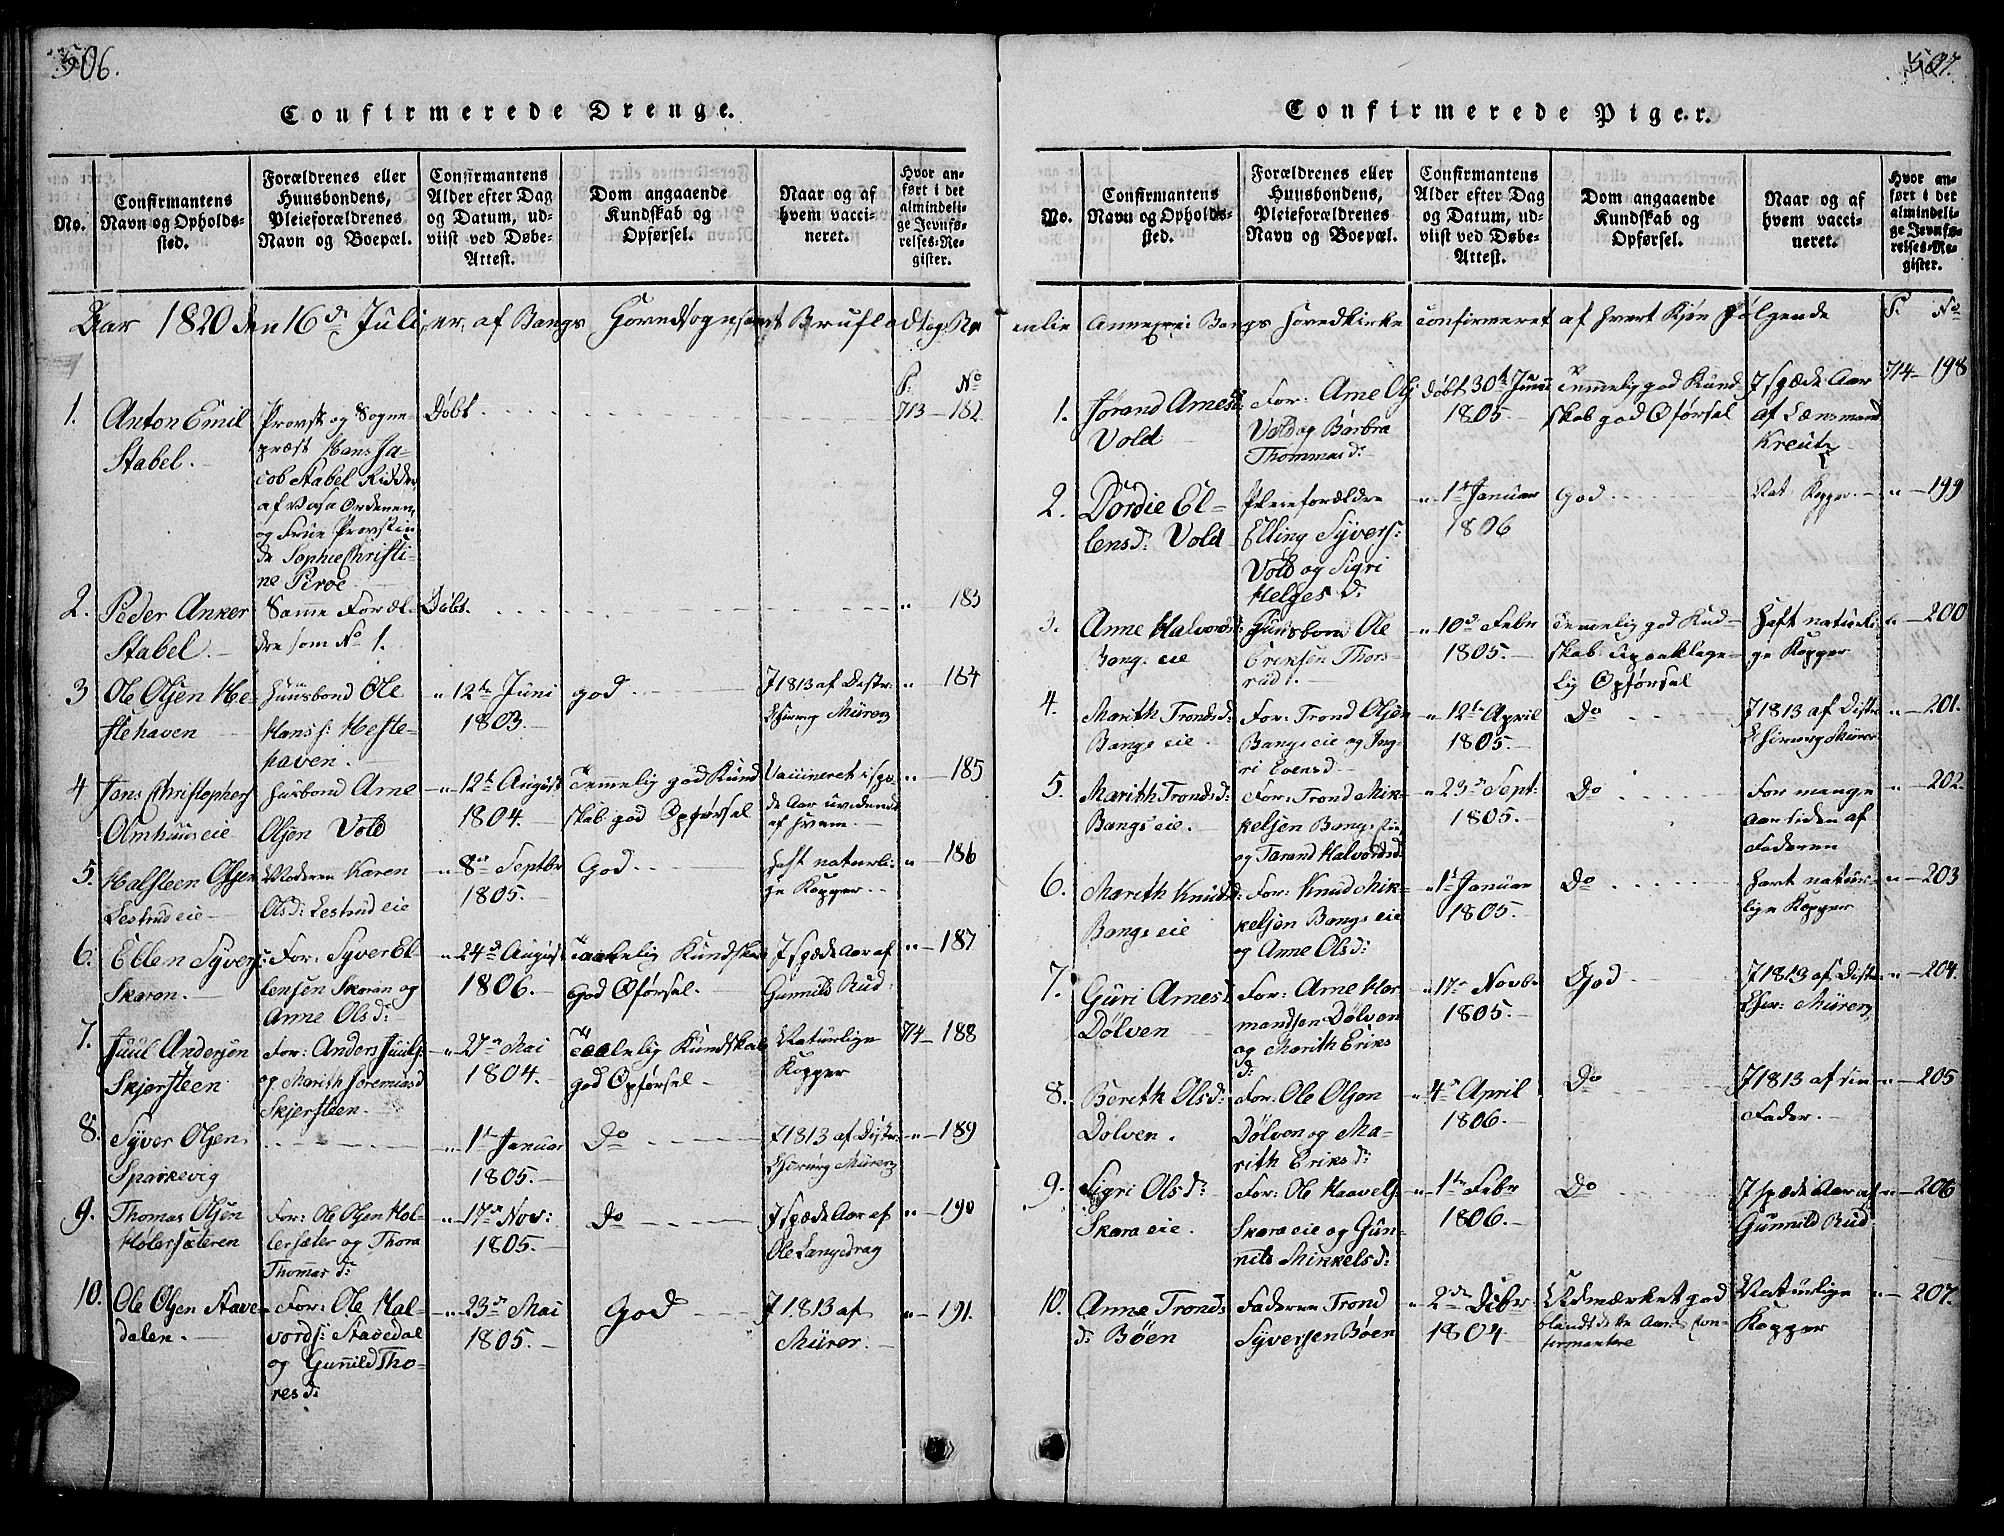 506.
Confirmerede Drenge.
No.
Confirmantens
Navn og Opholds-
sted.
Forældrenes eller
Huusbondens,
Pleieforældrenes
Navn og Boepæl.
Confirmantens
Alder efter Dag
og Datum, ud-
viist ved Døbe-
Attest.
Dom angaaende
Kundskab og
Opførsel.
Naar og af
hvem vacci-
neret.
Hvor an-
ført i det
almindeli-
ge Jevnfø-
relses-Re-
gister.
Aar 1820 den 16de Juli, er af Bangs Hovedsogn samt Bruflad og Re
1.
Anton Emil
Stabel.
Provst og Sogne-
præst Hans Ja-
cob Stabel Ridder
af Vasa Ordenen,
og Frue Provstin-
de Sophie Christi-
ne Piroe
Døbt
P: No
713 - 182
2.
Peder Anker
Stabel.
Same Foræl-
dre som No 1.
Døbt.
" 183
3
Ole Olsen He-
stehaven
Huusbond Ole
Hanss: Heste-
haven.
" 12te Juni
1803.
god
I 1813 af Distr:
Chirurg Mürer
" - 184
4
Jens Christophers
Olmhuus eie
Husbond Arne
Olsen Vold
" 12te August
1804.
Temmelig god Kund
skab god Opførsel
Vaccineret i spæ-
de Aar uvidende
af hvem.
" - 185
5.
Halsteen Olsen
Lestrud eie
Moderen Karen
Olsd: Lestrud eie
" 8de Septbr
1805.
God.
Haft naturli-
ge Kopper.
" - 186
6.
Ellen Syvers:
Skaran.
For: Syver El-
lensen Skaran og
Anne Olsd:
" 24de August
1806.
Taalelig Kundskab
God Oførsel.
I spæde Aar af
Gunnild Rud:
" - 187
7.
Juul Andersen
Skjersteen
For: Anders Juuls:
og Marith Joremunsd
Skjersteen.
" 27de Mai
1804.
Taalelig Kundskab
god Opførsel
Naturlige
Kopper
714 - 188
8.
Syver Olsen
Sparkevig
" 1te Januar
1805.
Do
I 1813 af Distr:
Chirurg Mürer
" - 189
9.
Thomas Olsen
Hølersæteren
For: Ole Olsen Høl-
lersæter og Thora
Thomasd:
" 17de Nov:
1805.
Do
I spæde Aar af
Ole Langedrag
" - 190
10.
Ole Olsen Stave-
dalen.
For: Ole Hal-
vords: Stavedal
og Gunnild Tho-
resd:
" 23de Mai
1805.
God
I 1813 af
Mürer.
" - 191.
507.
Confirmerede Piger.
No.
Confirmantens
Navn og Opholds-
sted.
Forældrenes eller
Huusbondens,
Pleieforældrenes
Navn og Boepæl.
Confirmantens
Alder efter Dag
og Datum, ud-
viist ved Døbe-
Attest.
Dom angaaende
Kundskab og
Opførsel.
Naar og af
hvem vacci-
neret.
Hvor an-
ført i det
almindeli-
ge Jevnfø-
relses-Re-
gister.
enlie Annexer i Bangs Hovedkirke confirmeret af hvert Kjøn Følgende
P. No
1.
Jørand Arnesd:
Vold
For: Arne Ols:
Vold og Barbra
Thommasd:
døbt 30te Junii
1805
Temmelig god Kund-
skab god Oførsel
I spæde Aar
af Lænsmand
Kreutz
714 - 198
2.
Dordie El-
lensd: Vold
Pleieforældre
Elling Syvers:
Vold og Sigri
Helgesd:
" 1te Januar
1806
God
Nat Kopper.
" - 199
3.
Anne Halvordsd:
Bangs eie
Huusbond Ole
Eriksen Thors-
rud.
" 10de Febr
1805.
Temmelig god Kud-
skab. Upaaklage-
lig Opførsel
Haft naturli-
ge Kopper
" - 200
4.
Marith Trondsd:
Bangs eie.
For: Trond Olsen
Bangs eie og Ing-
ri Evensd
" 12te April
1805.
Do
I 1813 af Distr
Chirurg Mürer
" - 201.
5.
Marith Trondsd:
Bangs eie.
For: Trond Mik-
kelsen Bangs eie
og Tarand Halvordsd
" 23de Sept:
1805.
Do
For mange
Aar siden af
Faderen
" - 202.
6.
Marith Knudsd:
Bangs eie
For: Knud Mik-
kelsen Bangs eie
og Anne Olsd:
" 1te Januar
1805.
Do
Havt natur-
lige Kopper
" - 203
7.
Guri Arnesd
Dølven
For: Arne Hor
mandsen Dølven
og Marith Eriks
d:
" 17de Novb.
1805.
God
I 1813 af Distr
Chir: Mürer
" - 204.
8.
Berith Olsd:
Dølven.
For: Ole Olsen
Dølven og Ma-
rith Eriksd:
" 4de April
1806.
Do
I 1813 af sin
Fader.
" - 205
9.
Sigri Olsd:
Skara eie
For: Ole Haavels:
Skara eie og Gun-
nild Mikkelsd:
" 1te Febr
1806.
Do
I spæde Aar af
Gunnild Rud
" - 206
10.
Anne Tronds
d: Bøen
Faderen Trond
Syversen Bøen
" 2den Dcbr
1804
Udmærket god
blandt dette Aars Con-
firmantere
Naturlige
Kopper
" - 207.